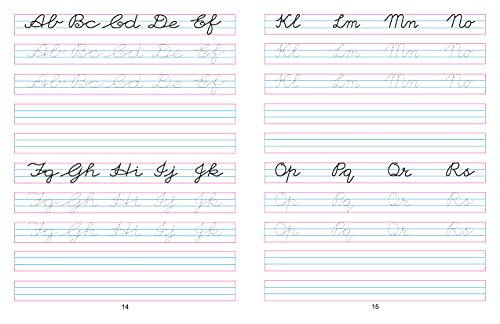 Ab Bc Cd De Ef
Ab Bc Cd De Ef
Ab Bc Cd De Ef
Fg Gh Hi Ij Jk
Fg Gh Hi Ij Jk
Fg Gh Hi Ij Jk
14
Kl Lm Mn No
Kl Lm Mn No
Kl Lm Mn No
Op Pq Qr Rs
Op Pq Qr Rs
Op Pq Qr Rs
15